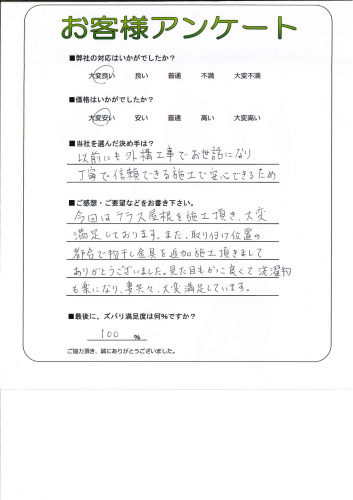 お客様アンケート
■弊社の対応はいかがでしたか？
大変良い 良い 普通 不満 大変不満
■価格はいかがでしたか？
大変安い 安い 普通 高い 大変高い
■当社を選んだ決め手は？
以前にも外構工事でお世話になり
丁寧で信頼できる施工で安心できるため
■ご感想・ご要望などをお書き下さい。
今回はテラス屋根を施工頂き、大変
満足しております。また、取り付け位置の
都合で物干し金具を追加施工頂きまして
ありがとうございました。見た目もかこ良くて洗濯物
も楽になり、妻共々、大変満足しています。
■最後に、ズバリ満足度は何％ですか？
100 ％
ご協力頂き、誠にありがとうございました。